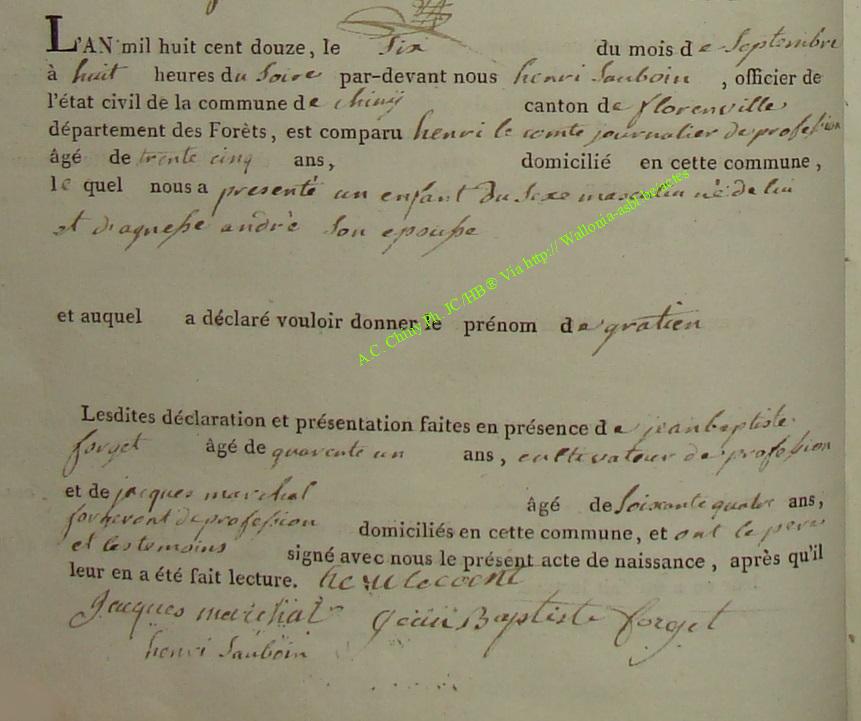 L'AN mil huit cent douze, le Six du mois de Septembre
à huit heures du Soire par-devant nous henri Sauboin , officier de
l'état civil de la commune de chiny canton de florenville
département des Forêts, est comparu henri le comte journalier de profession
âgé de trente cinq ans, domicilié en cette commune,
le quel nous a presenté un enfant du Sexe masculin né de lui
et d'agnesse andrè son epousse
et auquel a déclaré vouloir donner le prénom de gratien
Lesdites déclaration et présentation faites en présence de jean baptiste
forget âgé de quarente un ans, cultivateur de profession
et de jacques marchal âgé de Soixante quatre ans,
forgeront de profession domiciliés en cette commune, et ont le pere
et les temoins signé avec nous le présent acte de naissance, après qu'il
leur en a été fait lecture.
jacques marchal jean Baptiste forget
henri Sauboin
A.C. Chiny Ph. JC/HB® Via http:// Wallonia-asbl.be/actes